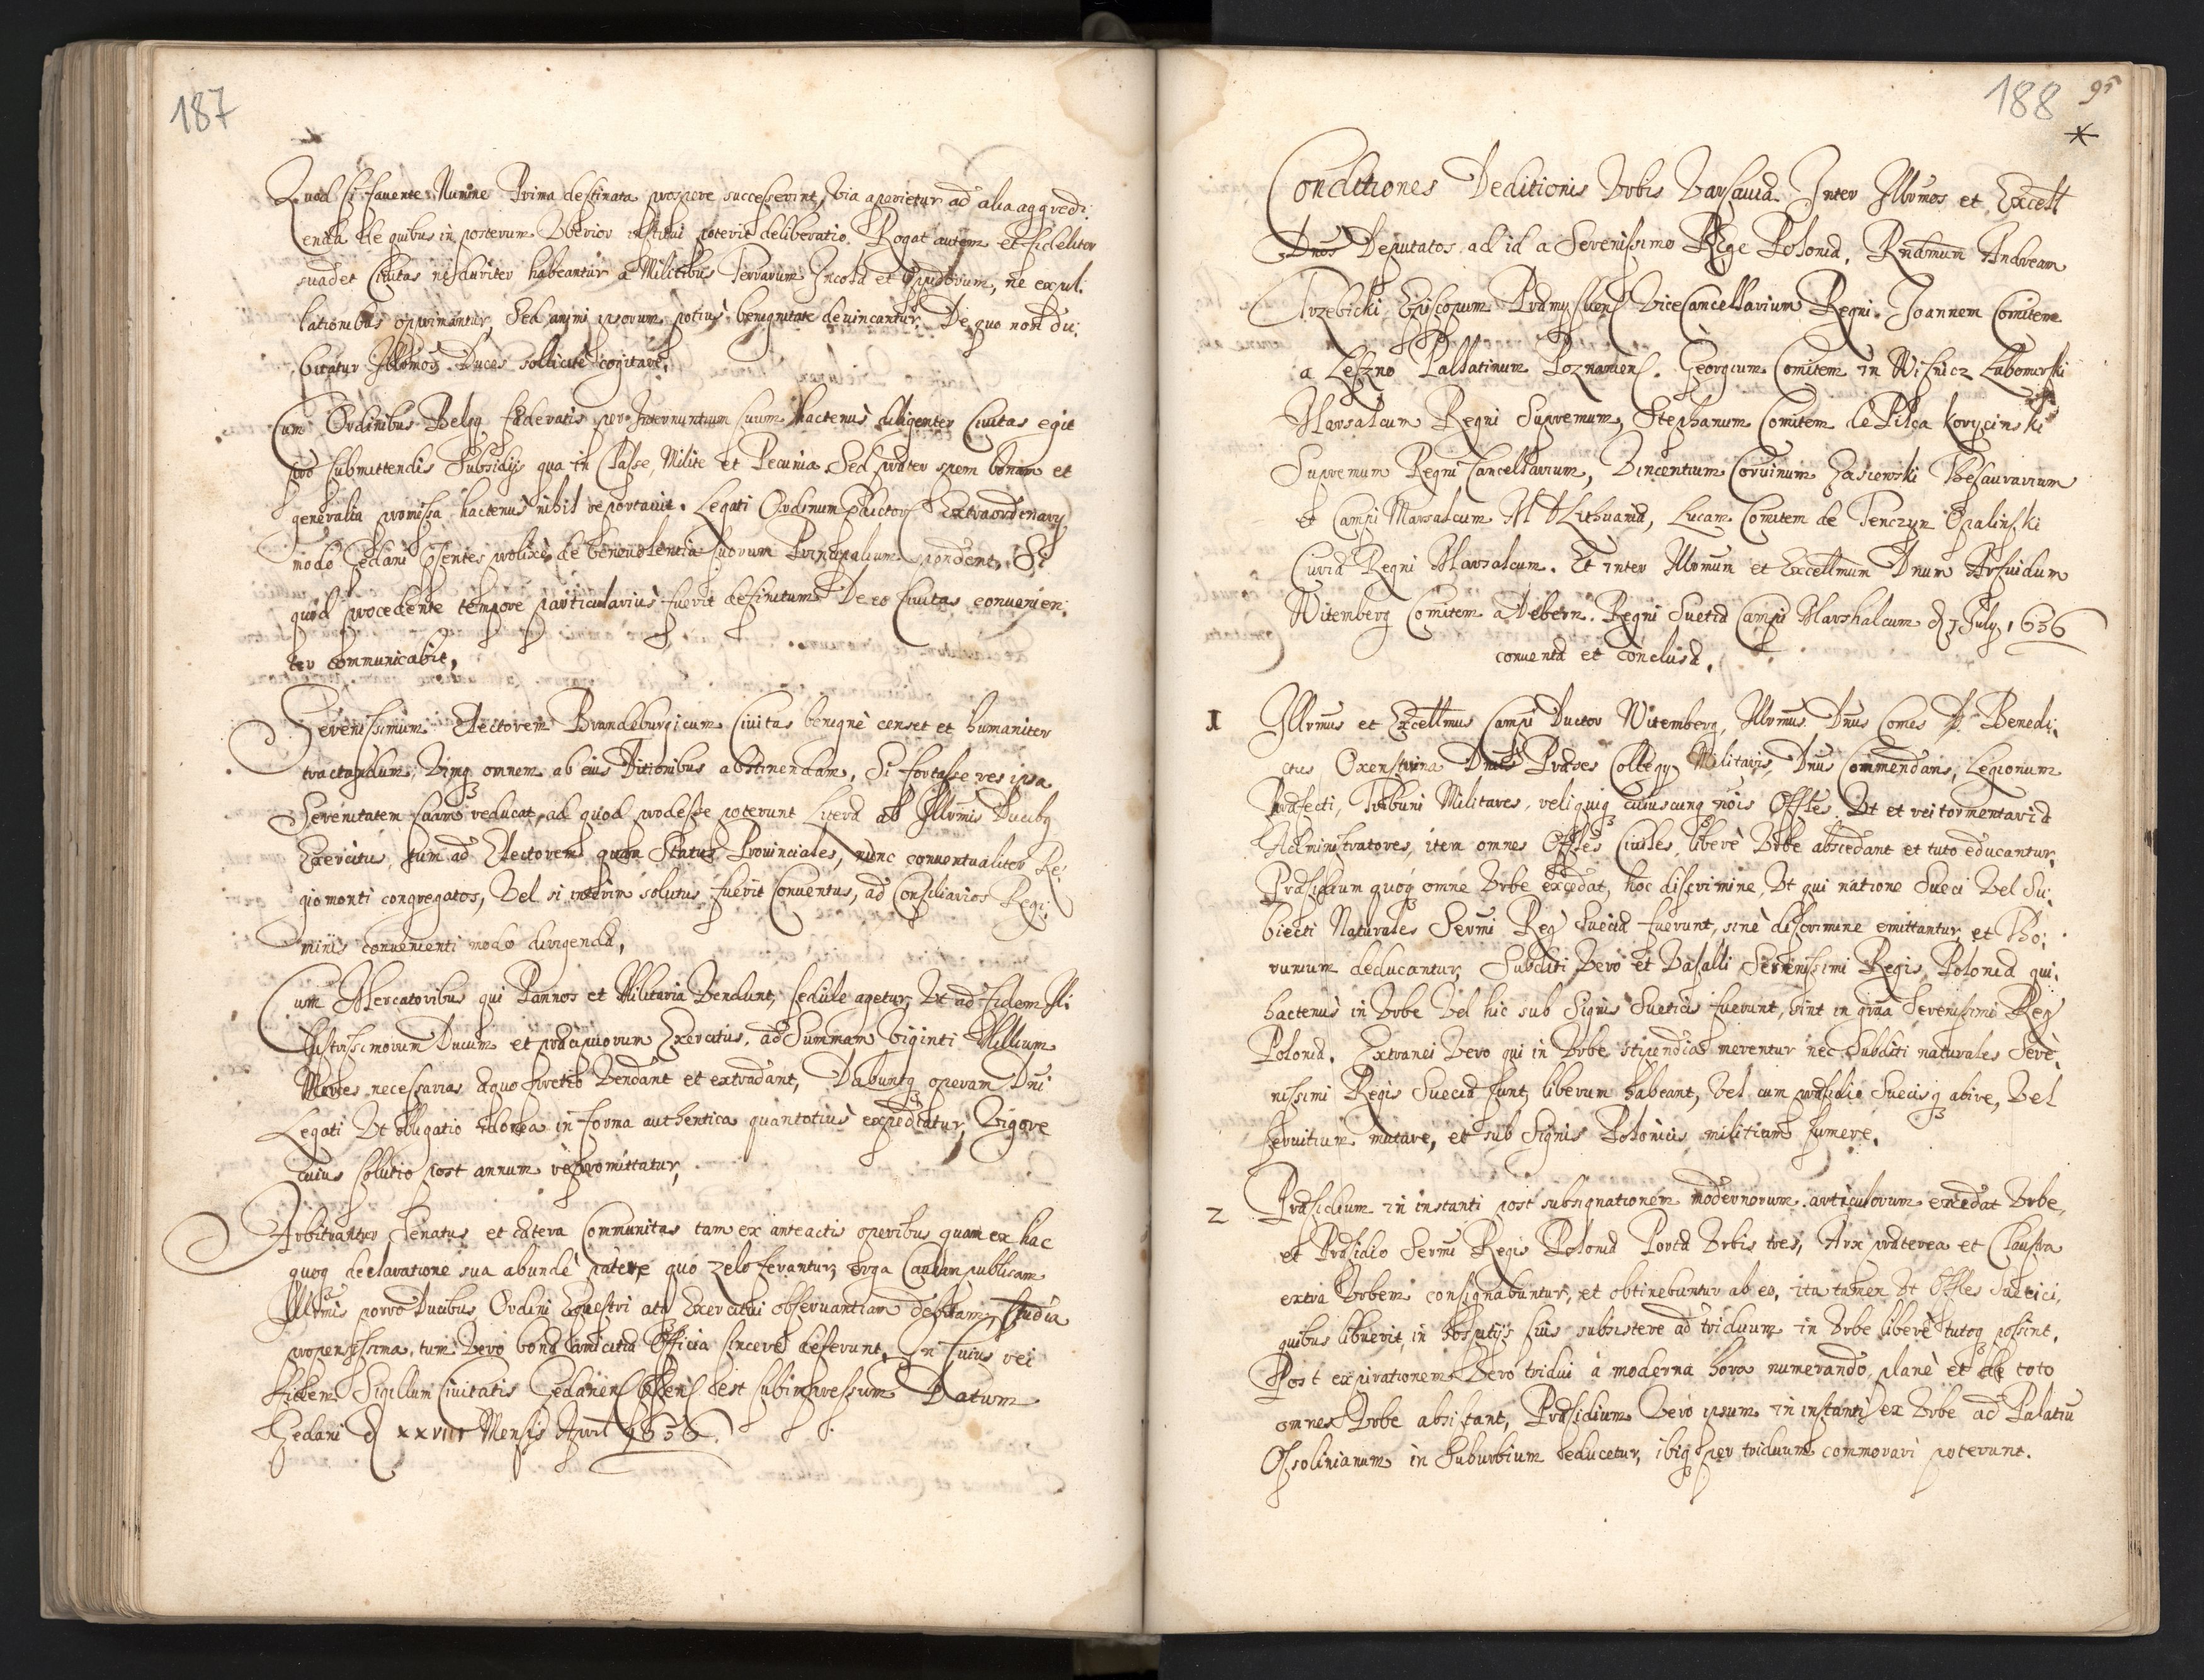 187
Quod si fauente Numine Prima destinata prospere successerint, Via aperietur ad alia aggredi:
enda de quibus in posterum Vberior institui poterit deliberatio. Rogat autem et fideliter
suadet Ciuitas ne duriter habeantur a Militibus Terrarum Incolæ et Oppidorum, ne expi:
lationibus opprimantur, Sed animi ipsorum potius benignitate deuincantur. De quo non du:
bitatur Illmos Duces sollicitè cogitare.
Cum Ordinibus Belgij fæderatis per Internuntium suum hactenus diligenter Ciuitas egit
pro submittendis Subsidijs qua in Classe, Milite et Pecunia Sed præter spem bonam et
generalia promissa hactenus nihil reportauit. Legati Ordinum Extraordinarij
modo Gedani prolixè de beneuolentia suorum Principalium spondent, Si
quid procedente tempore particularius fuerit definitum De eo Ciuitas conuenien:
ter communicabit,
Serenissimum Electorem Brandeburgicum Ciuitas benignè censet et humaniter
tractandum, Vimq omnem ab eius Ditionibus abstinendam, Si fortasse res ipsa
Serenitatem suam reducat, ad quod prodesse poterunt Literæ ab Illrmis Ducibq
Exercitus, tum ad Electorem quam Status Prouinciales, nunc conuentualiter Re:
giomonti congregatos, Vel si interim solutus fuerit Conuentus, ad Consiliarios Regi:
minis conuenienti modo dirigendæ,
Cum Mercatoribus qui Pannos et Militaria Vendunt, sedulè agetur, Vt ad fidem Il:
lustrissimorum Ducum et præcipuorum Exercitus, ad Summam Viginti Millium
Merces necessarias æquo pretio Vendant et extradant, Dabuntq operam Dni
Legati Vt obligatio idonea in forma authentica quantotius expediatur, Vigore
cuius solutio post annum repromittatur,
Arbitrantur Senatus et cætera Communitas tam ex anteactis operibus quam ex hac
quoq declaratione sua abundè patere quo zelo ferantur, erga Causam publicam
Illrmis porro Ducibus Ordini Equestri atq Exercitui obseruantiam debitam, Studia
propensissima, tum Vero bonæ amicitiæ Officia sincerè deferunt, In Cuius rei
fidem Sigillum Ciuitatis Gedanens est subimpressum Datum
Gedani d XXVIII Mensis April 1656.
188 95
Conditiones Deditionis Vrbis Varsauiæ Inter Illrmos et Excell
Dnos Deputatos ad id a Serenissimo Rege Poloniæ, Rndmum Andream
Trzebicki Episcopum Præmysliens ViceCancellarium Regni. Joannem Comitem
a Leszno Pallatinum Poznaniens. Georgium Comitem in Wisnicz Lubomirski
Marsalcum Regni Supremum, Stephanum Comitem de Pilca Korycinski
Supremum Regni Cancellarium, Vincentium Coruinum Gasiewski Thesaurarium
et Campi Marsalcum M D Lithuaniæ, Lucam Comitem de Tenczyn Opalinski
Curiæ Regni Marsalcum. Et inter Illrmum et Excellmum Dnum Arfuidum
Witemberg Comitem a Debern. Regni Suetiæ Campi Marshalcum d 1 July 1656
conuenta et conclusa.
1 Illrmus et Excellmus Campi Ductor Witemberg, Illrmus Dnus Comes D Benedi:
ctus Oxenstirna Dnus Præses Collegij Militaris, Dnus Commendans, Legionum
Præfecti, Tribuni Militares, reliquiq cuiuscunq nois Offles Vt et rei tormentariæ
Administratores, item omnes Offles Ciuiles, liberè Vrbe abscedant et tuto educantur,
Præsidium quoq omne Vrbe excedat, hoc discrimine, Vt qui natione Sueci Vel Su:
biecti Naturales Sermi Reg Sueciæ fuerunt, sinè discrimine emittantur, et Tho:
runium deducantur, Subditi Vero et Vasalli Serenissimi Regis Poloniæ qui
hactenus in Vrbe Vel hic sub Signis Sueticis fuerunt, sint in grãa Serenissimi Reg
Poloniæ. Extranei Vero qui in Vrbe stipendia merentur nec Subditi naturales Sere:
nissimi Regis Sueciæ sunt, liberum habeant, Vel cum præsidio Suecisq abire, Vel
seruitium mutare, et sub Signis Polonicis militiam sumere.
2 Præsidium in instanti post subsignationem modernorum articulorum excedat Vrbe,
et Præsidio Sermi Regis Poloniæ Portæ Vrbis tres, Arx præterea et Claustra
extra Vrbem consignabuntur, et obtinebuntur ab eo, ita tamen Vt Offles Suetici,
quibus libuerit, in hospitijs suis subsistere ad triduum in Vrbe liberè tutoq possint.
Post expirationem Vero tridui à moderna hora numerando, planè et de toto
omnes Vrbe absistant, Præsidium Verò ipsum in instanti ex Vrbe ad Palatiũ
Ossolinianum in Suburbium educetur, ibiq per triduum commorari poterunt.